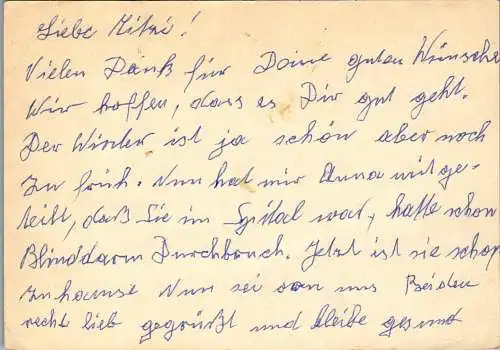 Liebe Mitzi!
Vielen Dank für Deine guten Wünsche
Wir hoffen, dass es Dir gut geht.
Der Winter ist ja schön aber noch
zu früh. Nun hat mir Anna mitge-
teilt, daß Sie im Spital war, hatte schon
Blinddarm Durchbruch. Jetzt ist sie schon
zuhause Nun sei von uns Beiden
recht lieb gegrüßt und bleibe gesund